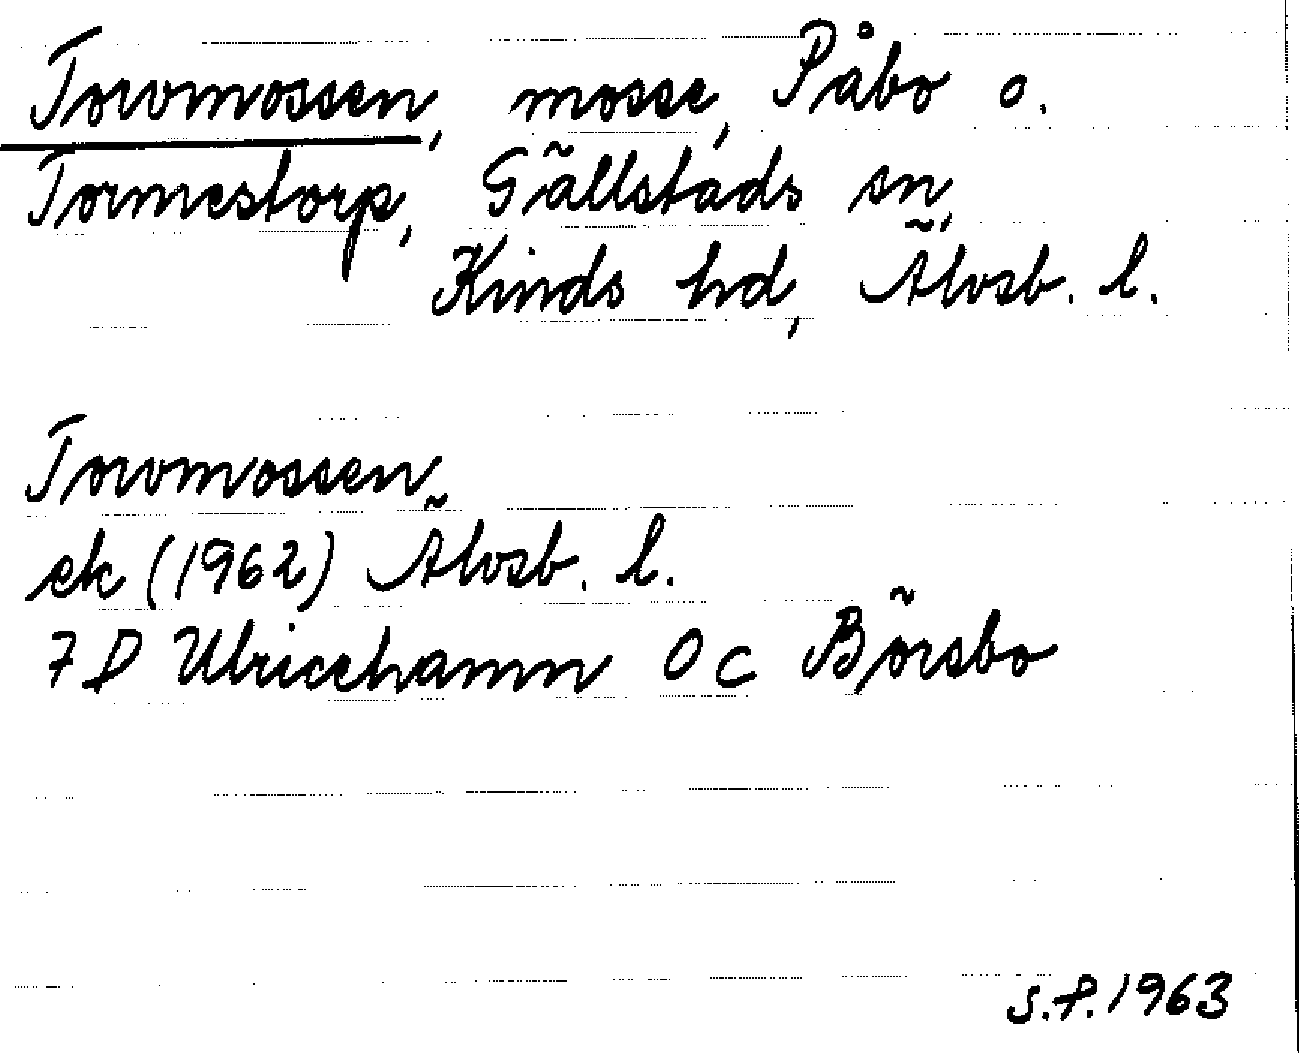 Torvmossen, mosse, Påbo o.
Tormestorp, Gällstads sn,
Kinds hd, Älvsb. l.
Torvmossen
ek (1962) Älvsb. l.
7 D Ulricehamn 0 c Börsbo
S.F. 1963